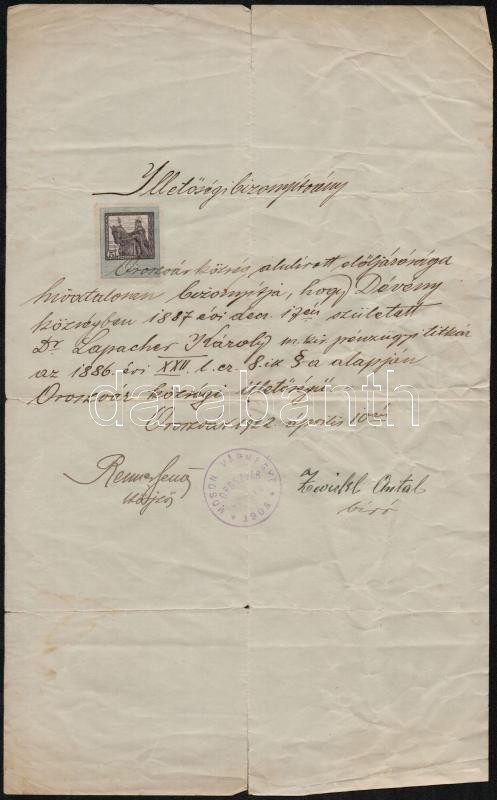 Illetőségi bizonyítvány
Oroszvár község alulírott elöljárósága
hivatalosan bizonyítja, hogy Dévény
községben 1887 évi dec. 17én született
Dr Lapacher Károly m. kir. pénzügyi titkár
az 1886 évi XXII. t. cz. 8. ik §-a alapján
Oroszvár községi illetőségű.
Oroszvár, 1922. április 10én
darabanth
MOSON VÁRMEGYE
Zwickl Antal
bíró